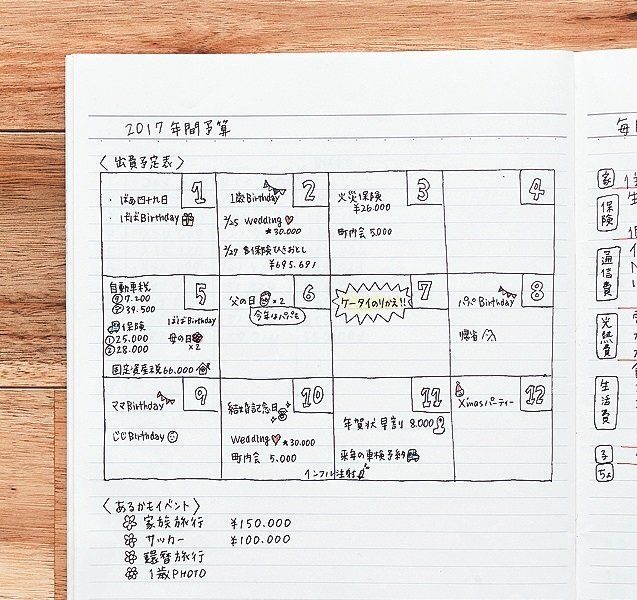 2017年間予算
〈出費予定表〉
1
・ばぁ四十九日
・ばぁばBirthday
2
1歳Birthday
2/25 wedding
¥30.000
2/27 保険ひきおとし
¥695.691
3
火災保険
¥26.000
町内会 5.000
4
5
自動車税
7.200
39.500
保険
ばぁばBirthday
①25.000
②28.000
母の日
×2
固定資産税66.000
6
父の日 ×2
今年はパパも
7
ケータイのりかえ!!
8
パパBirthday
帰省
9
ママBirthday
じじBirthday
10
結婚記念日
Wedding ¥30.000
町内会 5.000
11
年賀状早割 8.000
来年の車検予約
インフル注射
12
X'masパーティー
〈あるかもイベント〉
家族旅行 ¥150.000
サッカー ¥100.000
還暦旅行
1歳PHOTO
毎
家
保険
通信費
光熱費
生活費
子
ちょ